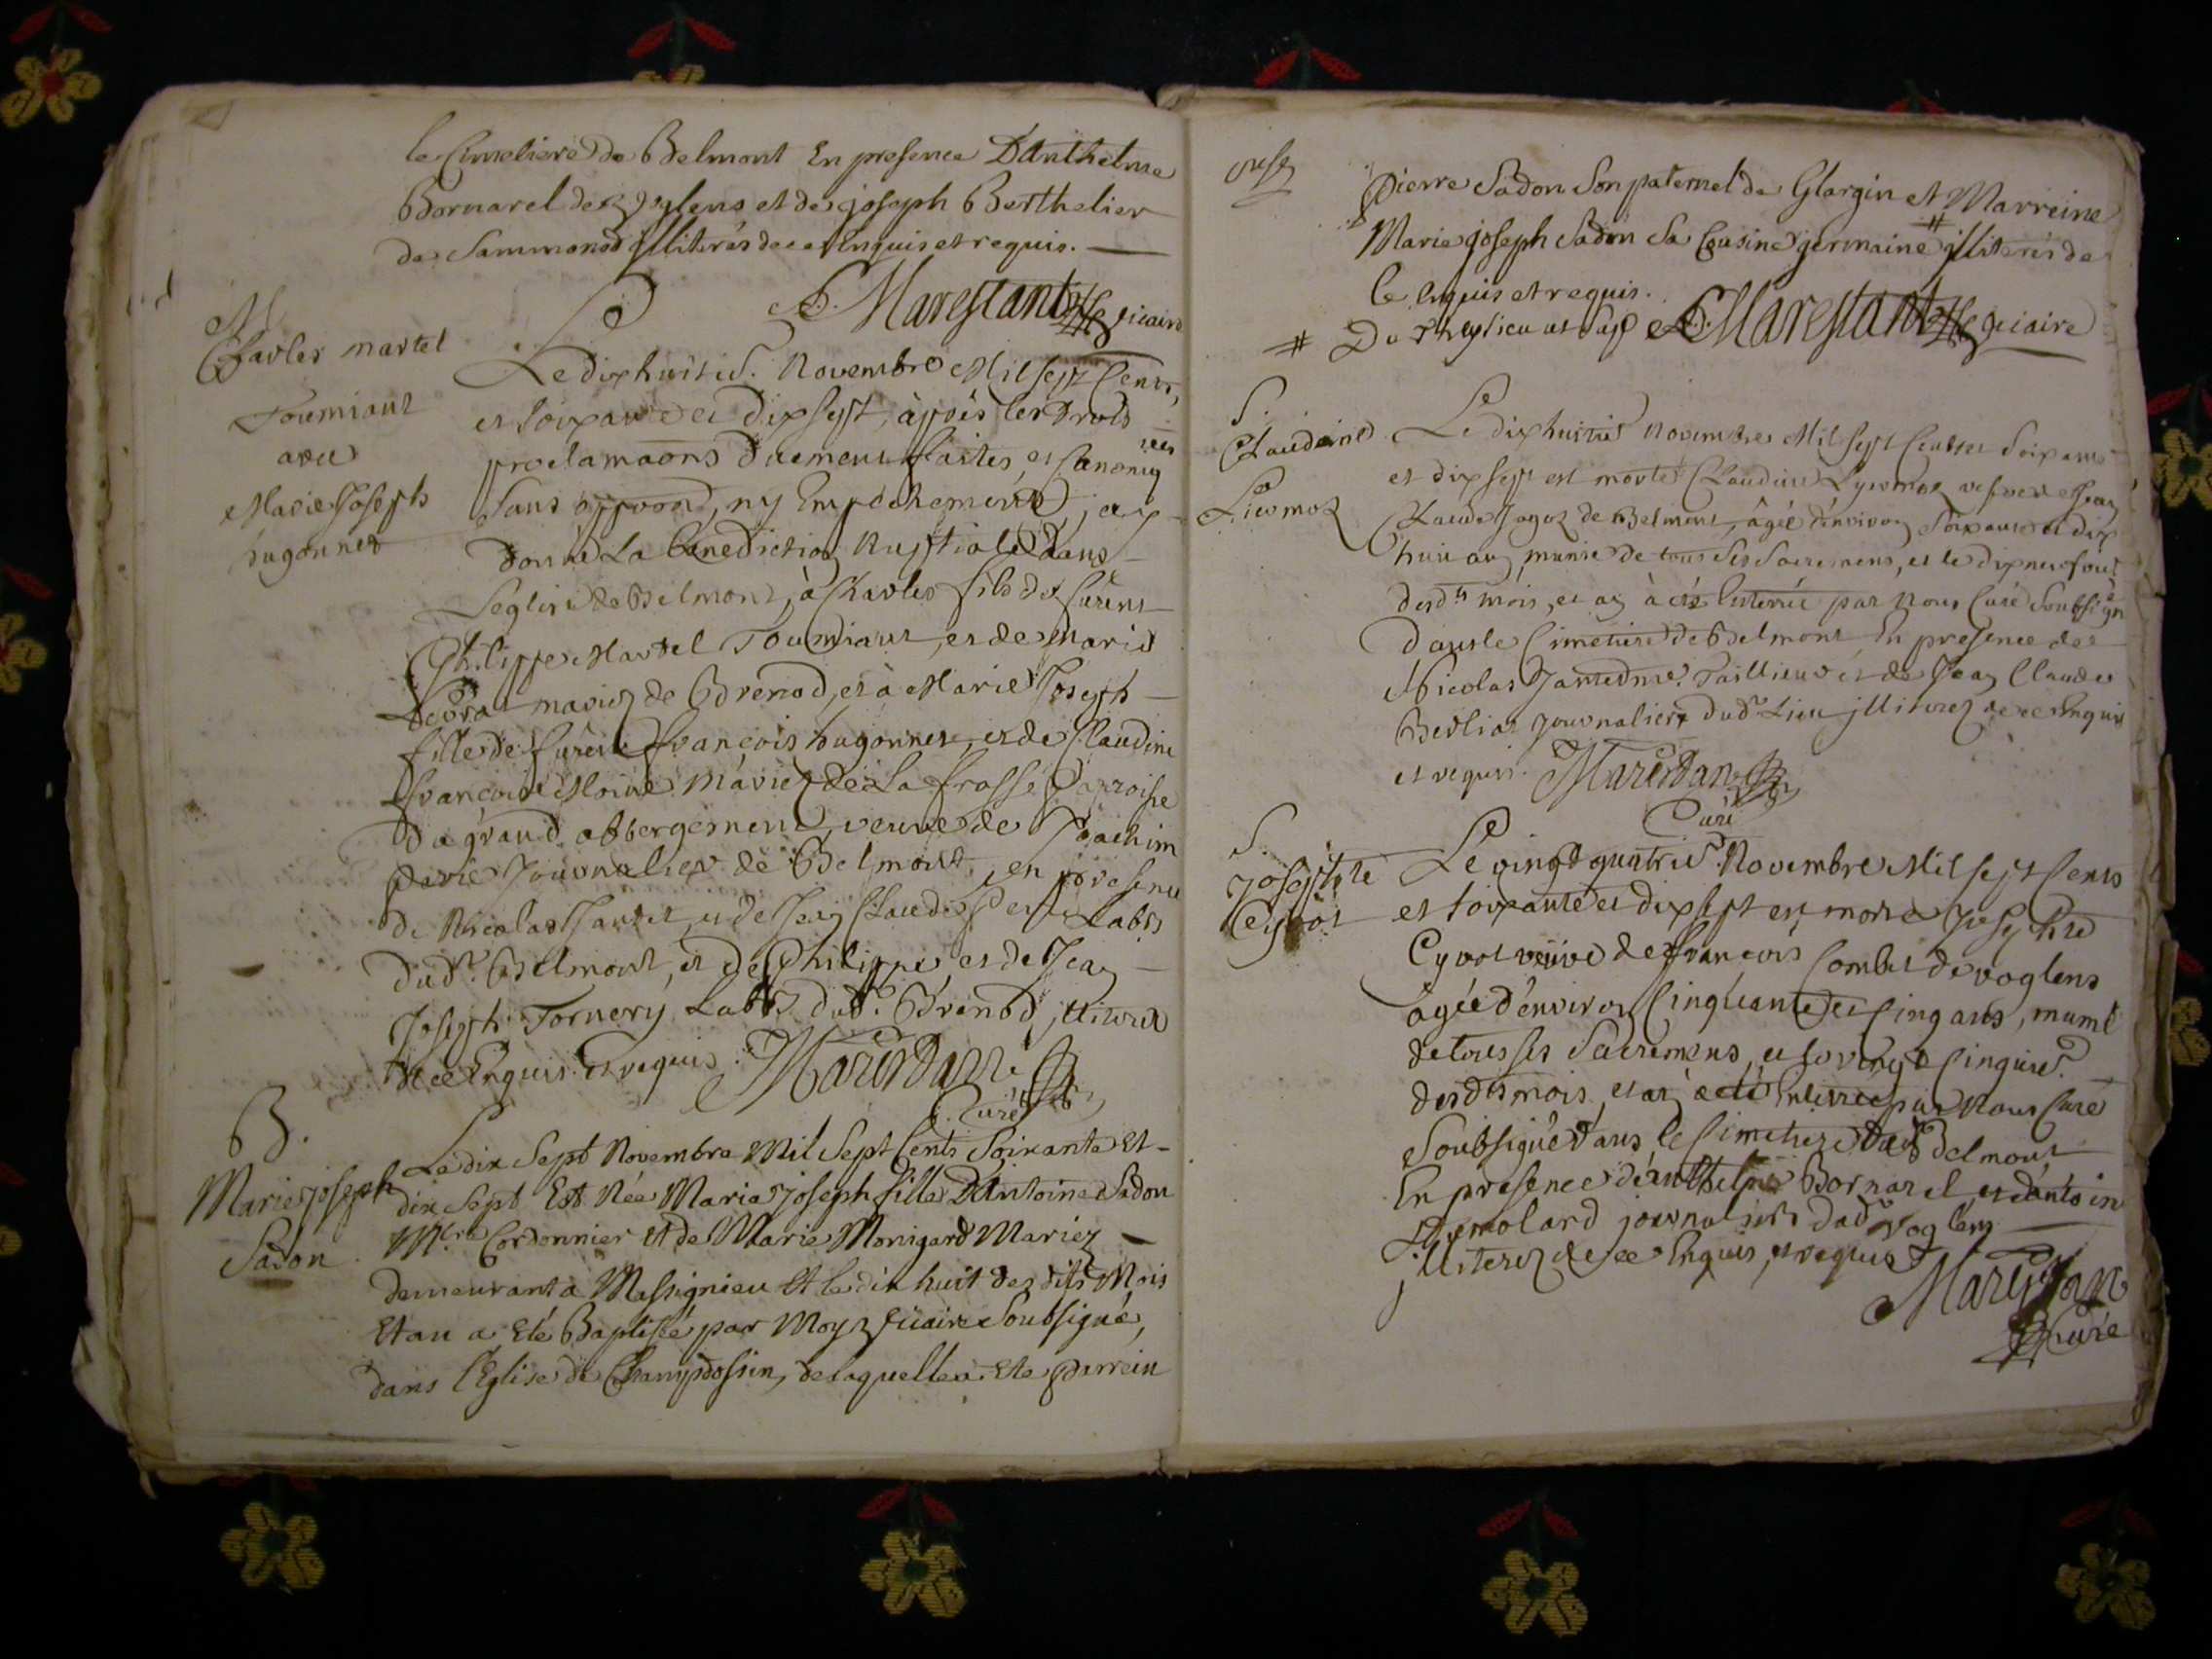 le Cimetiere de Belmont En presence D'Anthelme
Bornarel de Voglens et de joseph Berthelier
de Sammonod illiterés de ce Enquis et requis.
Marestant vicaire
M
Charles martel
Tourniant
avec
Marie Joseph
hugonnet
Le dix huitie. Novembre Mil sept Cents,
et soixante et dix sept, après les trois
proclamaôns duement faites, et canoniq
ues
sans oppoôn, ny Empêchement, jay
donné La benediction Nuptiale dans
Leglise de Belmont, à Charles fils de furent
Philippe Martel Tourniant, et de marie
mariez de Brenod, et à Marie Joseph
fille de furent françois hugonnet, et de Claudine
françoise Moine Mariez de La frasse Parroisse
Du grand abbergement, veuve de Joachim
pavie Journalier de Belmont, en presence
de Nicolas Jantet, et de Jean Claude Labrs
dud. Belmont, et de Philippe, et de Jean
Joseph Tornery Labrs dud. Brenod, illitere
de ce Enquis et requis. Marestant
Curé
B.
Marie joseph
Sadon
Le dix Sept Novembre Mil Sept Cents Soixante Et
dix Sept Est Née Marie joseph fille D'Antoine Sadon
Mtre Cordonnier et de Marie Monigard Mariez
demeurant a Massignieu Et le dix huit des dits Mois
Et an a Eté Baptisée par Moy vicaire Soubsigné,
dans l'Eglise de Champdossin, de laquelle a Eté parrein
Pierre Sadon Son paternel de Glargin et Marreine
Marie joseph Sadon Sa Cousine germaine # illiterés de
Ce enquis et requis.
# Du et Marestant vicaire
S.
Claudine
Liermoz
Le dix huitie Novembre Mil sept Centset Soixante
et dix sept est morte Claudine Lyermoz vefve de Jean
Claude Jagoz de Belmont, âgée d'environ Soixante et dix
huit ans munie de tous Ses Sacremens, et le dix neuf
desdts mois, et an à été Enterrée par Nous Curé Soubsigné
dans le Cimetiere de Belmont En presence de
Nicolas Jantet me. Taillieur et de Jean Claude
Berliat Journaliers dud. Lieu illiterez de ce Enquis
et requis. Marestan
Curé
S.
Josephte
Cyvot
Le vingt quatrie. Novembre Mil sept Cents
et soixante et dix sept est morte Josephte
Cyvot veuve de françois Combet de voglens
agée d'environ Cinquante et Cinq ans, munie
de tous ses Sacremens, et le vingt Cinquie.
desdts mois, et an à eté Enterrée par Nous Curé
Soubsigné dans le Cimetiere dud. Belmont
En presence d'anthelme Bornarel, et d'antoine
Dumolard journaliers dud. voglens
illiterez de ce Enquis, et requis
Marestan
Curé